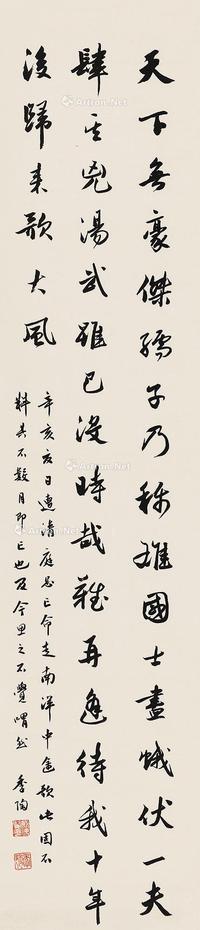 天下無豪傑孺子乃稱雄國士盡蛾伏一夫
肆其兇湯武雖已沒時哉難再逢待我十年
後歸來歌大風
辛亥六日遭清庭忌亡命走南洋中途歌此固不
料其不數月即亡也及今思之不覺喟然 季陶